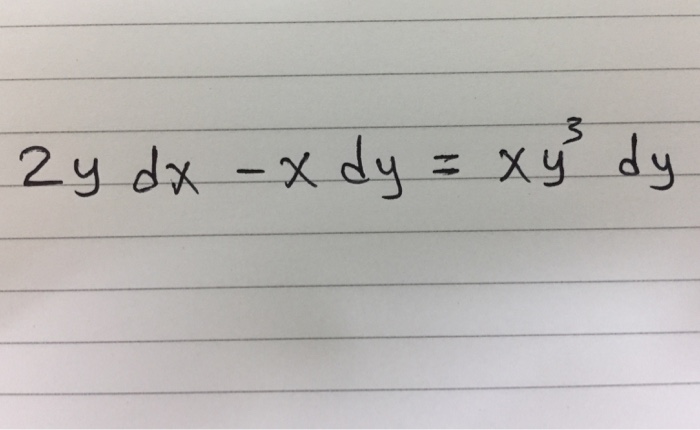 2y dx - x dy = xy³ dy